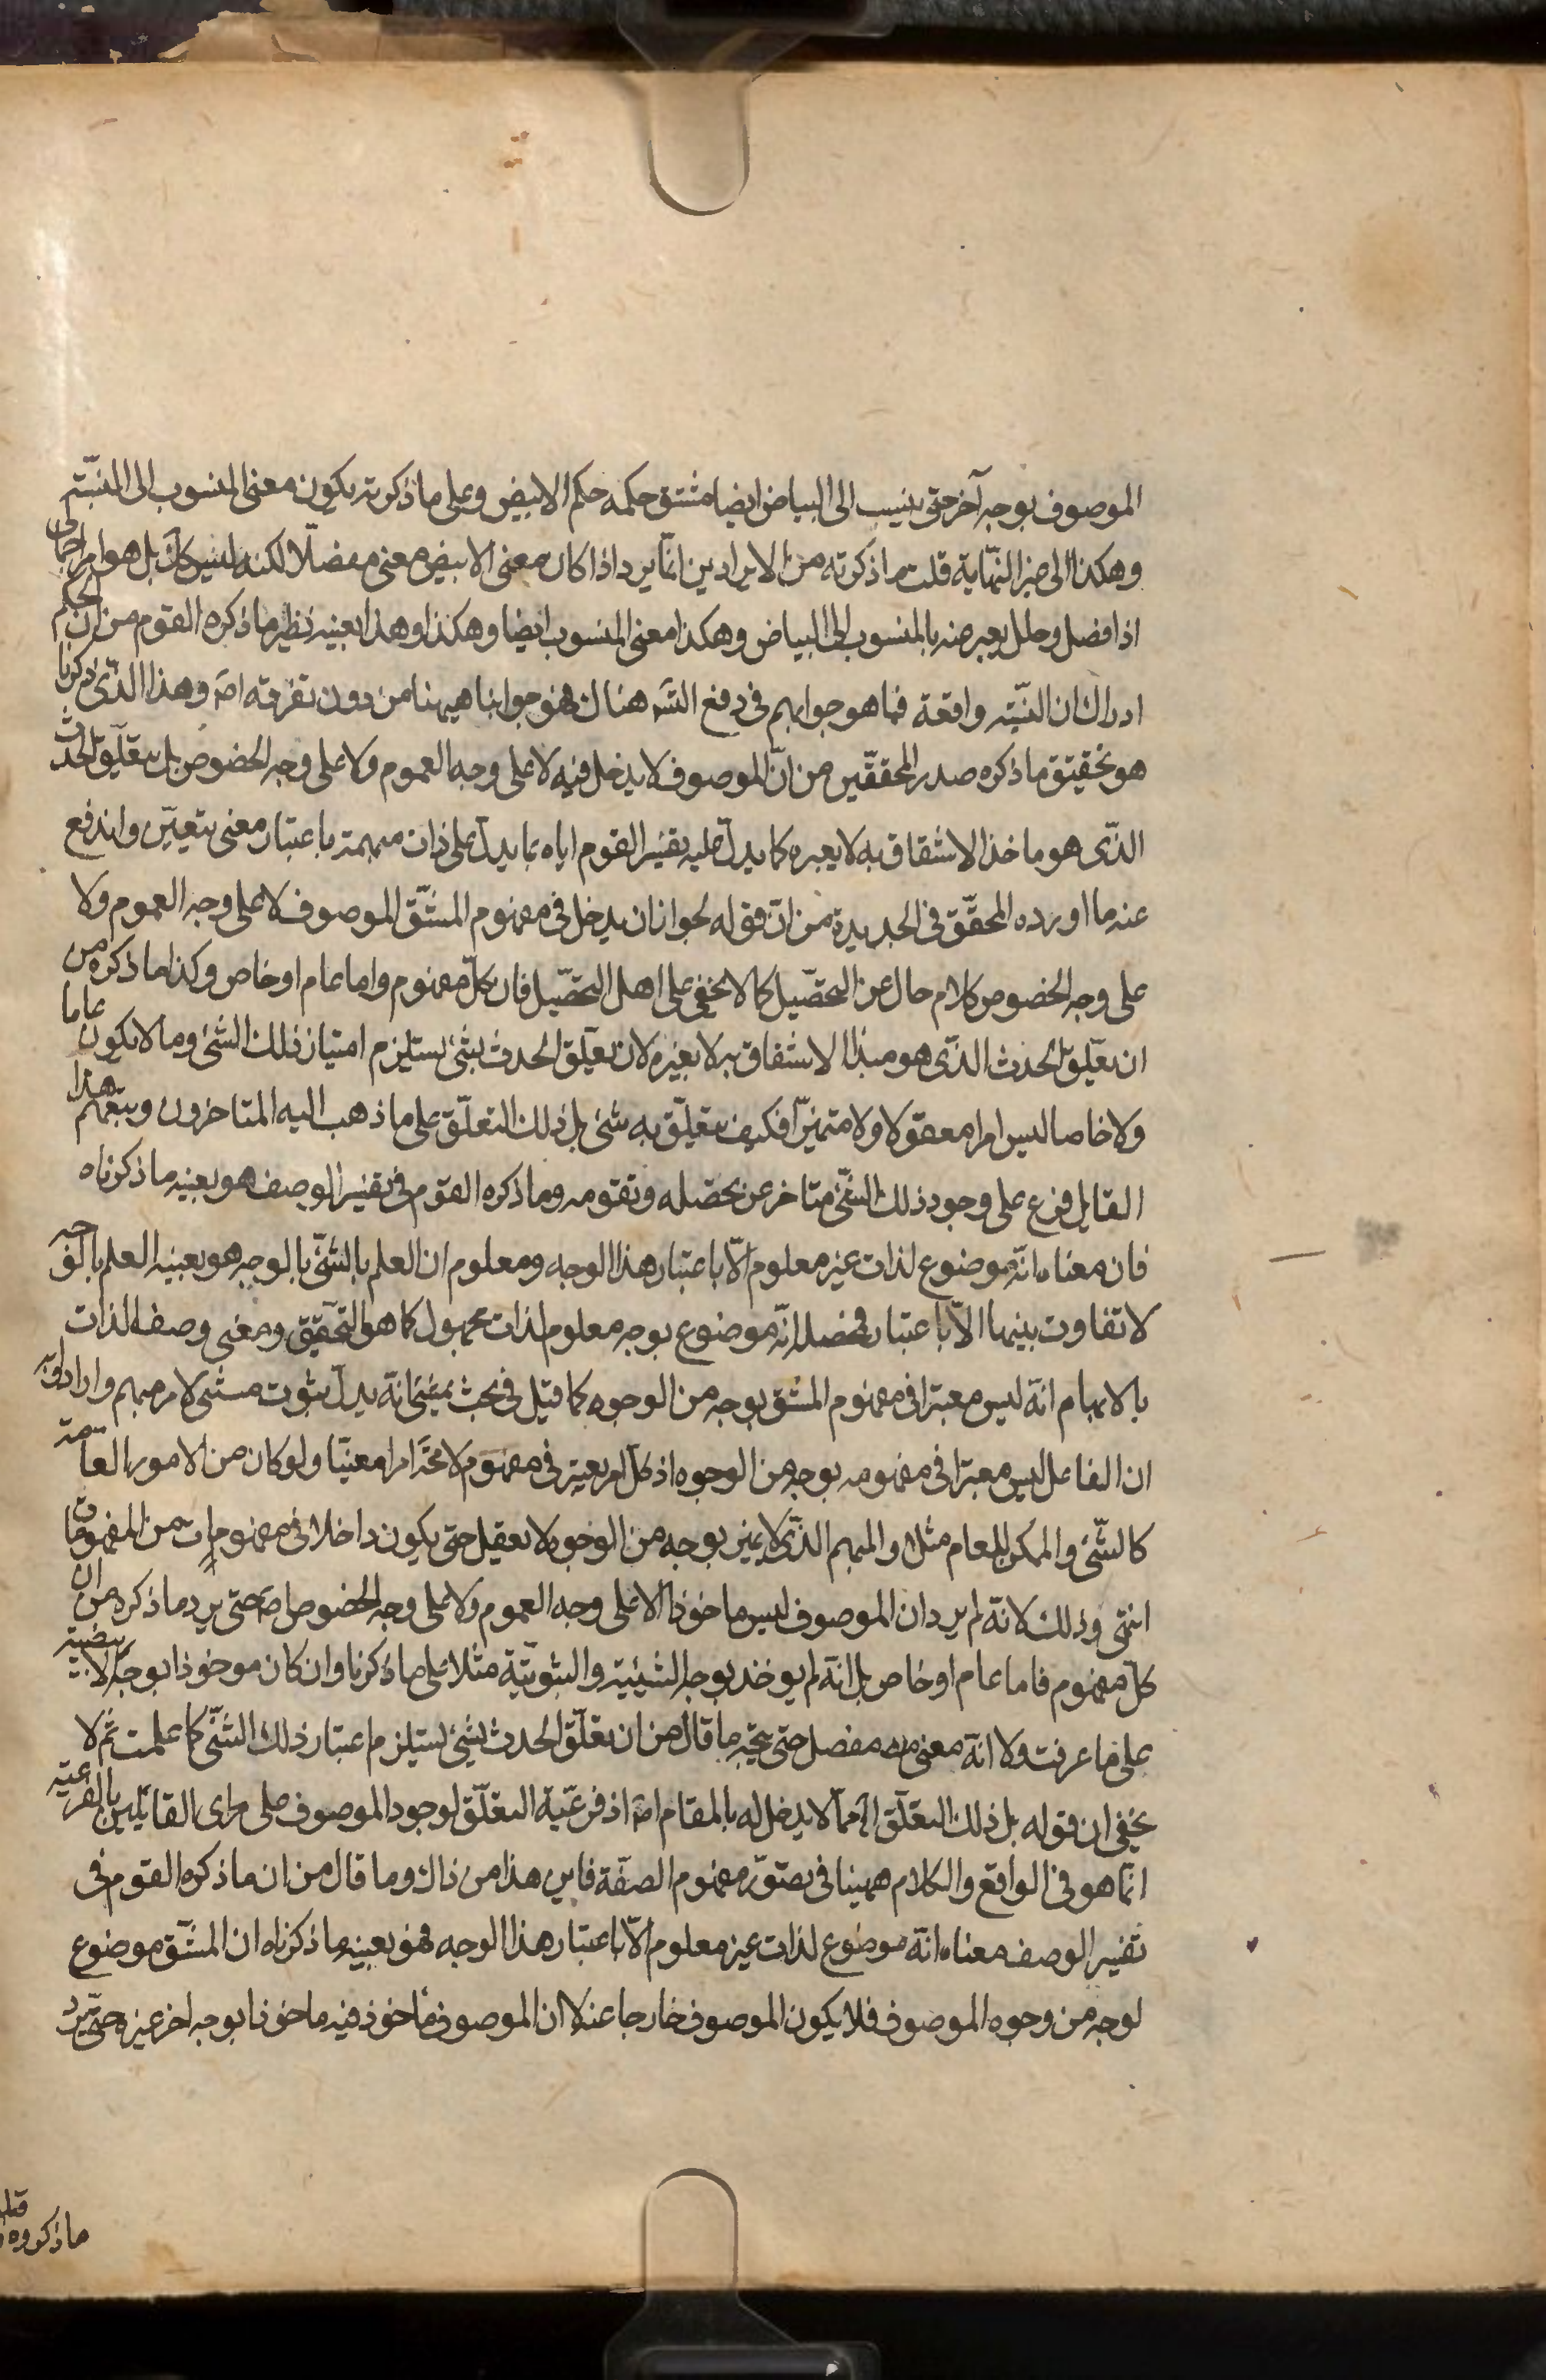 الموصوف بوجه آخر حتى ينسب الى البياض ايضا مشتق حكمه حكم الابيض وعلى ما ذكرته يكون معنى المنسوب الى المنتسب
وهكذا الى غير النهاية قلت ما ذكرته من الايرادين انما يرد اذا كان معنى الابيض معنى مفصلا لكنه ليس كك بل هو امر اجمالي
اذا فصل وحلل يعبر عنه بالمنسوب الى البياض وهكذا معنى المنسوب ايضا وهكذا وهذا بعينه نظير ما ذكره القوم من ان الحكم
ادراك ان النسبة واقعة فما هو جوابهم في دفع التسلسل هناك فهو جوابنا هيهنا من دون تفرقة اصلا وهذا الذي ذكرنا
هو تحقيق ما ذكره صدر المحققين من ان الموصوف لا يدخل فيه لا على وجه العموم ولا على وجه الخصوص بل يتعلق الحدث
الذي هو ماخذ الاشتقاق به لا بغيره كما يدل عليه تفسير القوم اياه بما يدل على ذات مبهمة باعتبار معنى يتعين واندفع
عنه ما اورده المحقق في الجديدة من ان قوله لجواز ان يدخل في مفهوم المشتق الموصوف لا على وجه العموم ولا
على وجه الخصوص كلام خال عن التحصيل كما لا يخفى على اهل التحصيل فان كل مفهوم واما عام او خاص وكذا ما ذكره من
ان تعلق الحدث الذي هو مبدا الاشتقاق به لا بغيره لان تعلق الحدث بشئ يستلزم امتياز ذلك الشئ وما لا يكون عاما
ولا خاصا ليس امرا معقولا ولا متميزا فكيف يتعلق به شئ بل ذلك التعلق على ما ذهب اليه المتاخرون ويتبعهم هذا
القايل فرع على وجود ذلك الشئ متاخر عن تحصله وتقومه وما ذكره القوم في تفسير الوصف هو بعينه ما ذكرناه
فان معناه انه موضوع لذات غير معلوم الا باعتبار هذا الوجه ومعلوم ان العلم بالشئ بالوجه هو بعينه العلم بالوجه
لا تفاوت بينهما الا باعتبار فحصله انه موضوع بوجه معلوم لذات مجهول كما هو التحقيق ومعنى وصف الذات
بالابهام انه ليس معتبرا في مفهوم المشتق بوجه من الوجوه كما قيل في بحث يمشي انه يدل بثبوت مشي لامر مبهم وارادوا به
ان الفاعل ليس معتبرا في مفهومه بوجه من الوجوه اذ كل امر يعتبر في مفهوم لا محة امرا معينا ولو كان من الامور العامة
كالشئ والممكن العام مثلا والمبهم الذي لا يتميز بوجه من الوجوه لا يعقل حتى يكون داخلا في مفهوم من المفهومات
انتهى وذلك لانه لم يرد ان الموصوف ليس ماخوذا لا على وجه العموم ولا على وجه الخصوص اصلا حتى يرد ما ذكره من ان
كل مفهوم فاما عام او خاص بل انه لم يوخذ بوجه الشيئية والثبوتية مثلا على ما ذكرنا وان كان موخوذا بوجه الابيضية
على ما عرفت ولا انه معنى مفصل حتى يتجه ما قال من ان تعلق الحدث بشئ يستلزم اعتبار ذلك الشئ كما علمت ثم لا
يخفى ان قوله بل ذلك التعلق الخ مما لا يدخل له بالمقام اصلا اذ فرعية التعلق لوجود الموصوف على راى القايلين بالفرعية
انما هو في الواقع والكلام هيهنا في تصور مفهوم الصفة فاين هذا من ذاك وما قال من ان ما ذكره القوم في
تفسير الوصف معناه انه موضوع لذات غير معلوم الا باعتبار هذا الوجه فهو بعينه ما ذكرناه ان المشتق موضوع
لوجه من وجوه الموصوف فلا يكون الموصوف خارجا عنه لا ان الموصوف ماخوذ فيه ماخوذا بوجه اخر غيره حتى يرد
ما ذكروه